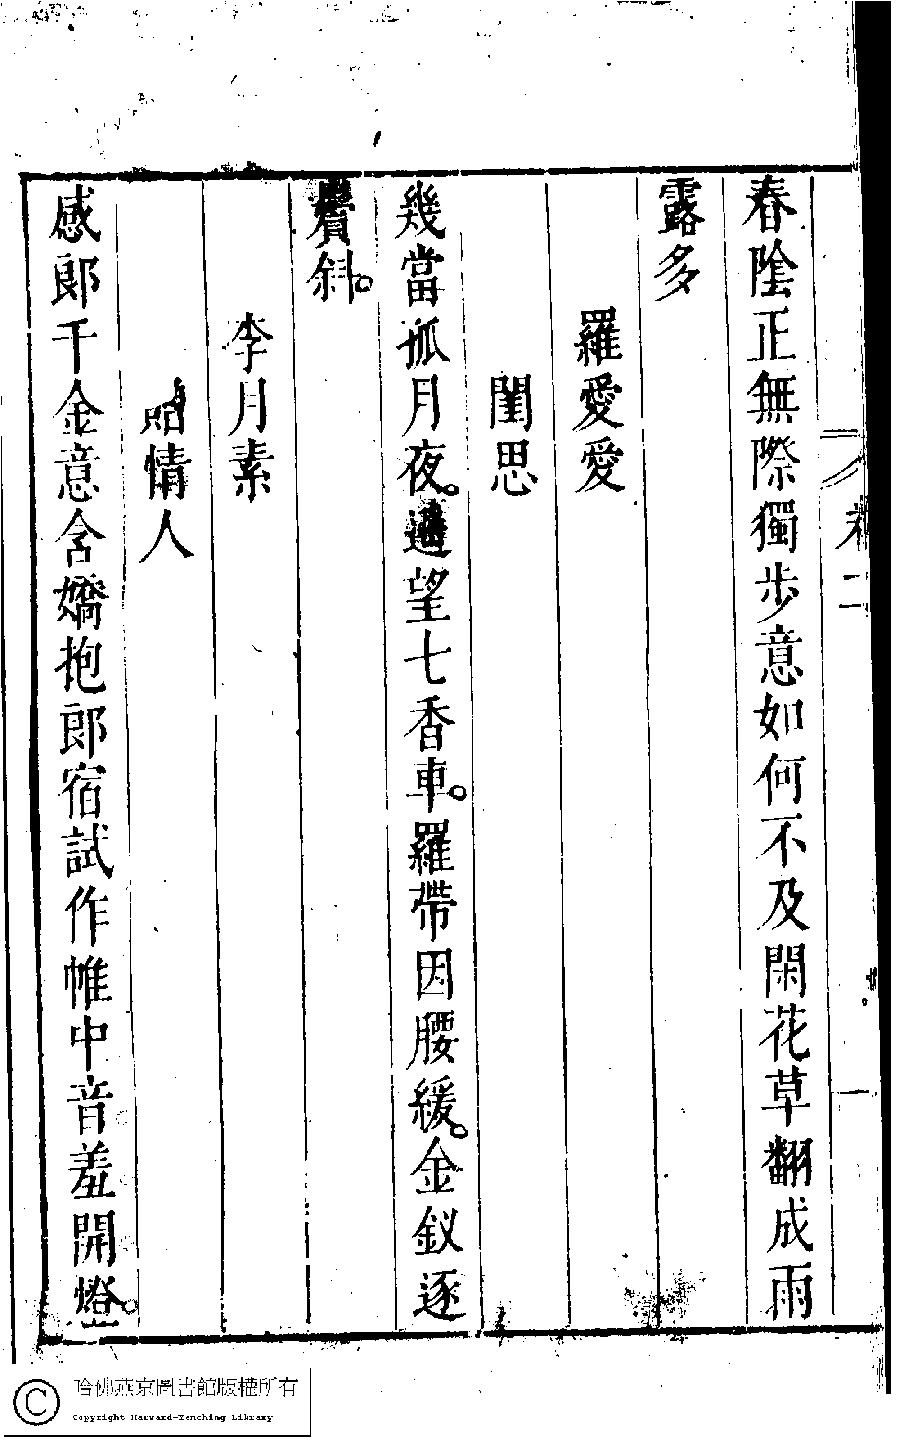 卷二
一
春陰正無際獨步意如何不及閑花草翻成雨
露多
羅愛愛
閨思
幾當孤月夜。遙望七香車。羅帶因腰緩。金釵逐
鬢斜。
李月素
贈情人
感郎千金意含嬌抱郎宿試作帷中音羞開燈
哈佛燕京圖書館版權所有
Copyright Harvard-Yenching Library